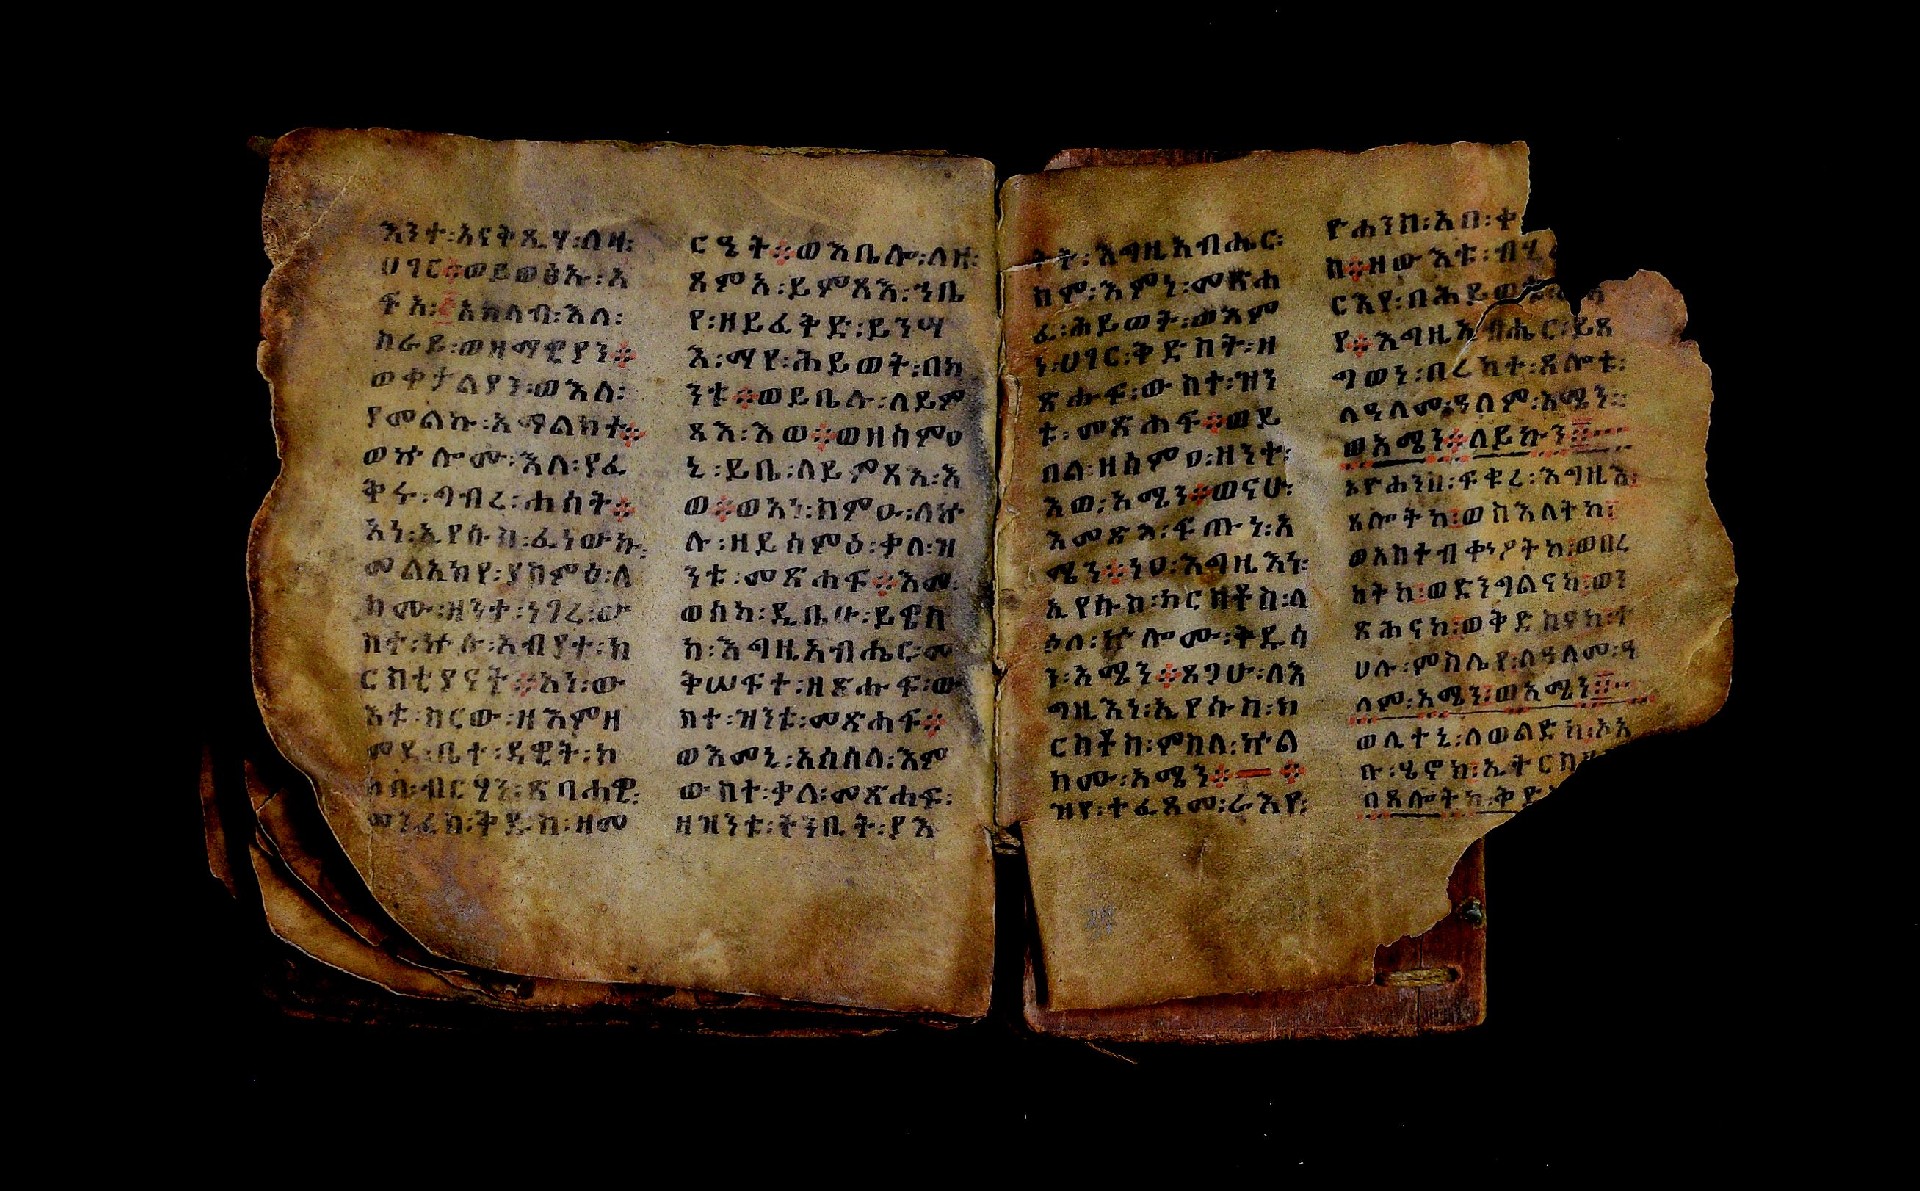 እንተ፡አናቅጺሃ፡ለዛ፡
ሀገር፨ወይወፅኡ፡አ
ፍአ፡
ከራይ፡ወዘማዊያን፨
ወቀታልያን፡ወእለ፡
ያመልኩ፡አማልክተ፨
ወኵሎሙ፡እለ፡ያፈ
ቅሩ፡ገብረ፡ሐሰት፨
አነ፡ኢየሱስ፡ፈነውኩ፡
መልአክየ፡ያስምዕ፡ለ
ክሙ፡ዘንተ፡ነገረ፡ው
ስተ፡ኵሉ፡አብያተ፡ክ
ርስቲያናት፨አነ፡ው
እቱ፡ሥርው፡ዘእምዘ
መደ፡ቤተ፡ዳዊት፡ኮ
ከብ፡ብርሃን፡ጽባሓዊ፡
መንፈስ፡ቅዱስ፡ዘመ
ርዓት፨ወእቤሎ፡ለዘ፡
ጸምአ፡ይምጻእ፡ኀቤ
የ፡ዘይፈቅድ፡ይንሣ
እ፡ማየ፡ሕይወት፡በከ
ንቱ፨ወይቤሉ፡ለይም
ጻእ፡እወ፨ወዘሰምዐ
ኒ፡ይቤ፡ለይምጻእ፡እ
ወ፨ወአነ፡ስምዑ፡ለኵ
ሉ፡ዘይሰምዕ፡ቃለ፡ዝ
ንቱ፡መጽሐፍ፨እመ፡
ወሰከ፡ዲቤሁ፡ይዌስ
ክ፡እግዚአብሔር፡መ
ቅሠፍተ፡ዘጽሑፍ፡ው
ስተ፡ዝንቱ፡መጽሐፍ፨
ወእመኒ፡አሰሰለ፡እም
ውስተ፡ቃለ፡መጽሐፍ፡
ዘዝንቱ፡ትንቢት፡ያእ
ትት፡እግዚአብሔር፡
ከም፡እምነ፡መጽሐ
ፈ፡ሕይወት፡ወእም
ነ፡ሀገር፡ቅድስት፡ዘ
ጽሑፍ፡ውስተ፡ዝን
ቱ፡መጽሐፍ፨ወይ
በል፡ዘሰምዐ፡ዘንተ፡
እወ፡አሜን፨ወናሁ፡
እመጽእ፡ፍጡነ፡አ
ሜን፨ነዐ፡እግዚእነ፡
ኢየሱስ፡ክርስቶስ፡ለ
ዕለ፡ኵሎሙ፡ቅዱሳ
ን፡አሜን፨ጸጋሁ፡ለእ
ግዚእነ፡ኢየሱስ፡ክ
ርስቶስ፡ምስለ፡ኵል
ክሙ፡አሜን፨
ዝየ፡ተፈጸመ፡ራእየ፡
ዮሐንስ፡አበ፡ቀ
ስ፨ዘውእቱ፡ብሂ
ርእየ፡በሕይወ
የ፨እግዚአብሔር፡ይጸ
ግወነ፡በረከተ፡ጸሎቱ፡
ለዓለመ፡ዓለም፡አሜን፡፡
ወአሜን፨ለይኩን፡፡
ኦዮሐንስ፡ፍቁረ፡እግዚእ፡
ጸሎትከ፡ወስእለትከ፡
ወአስተብቀነዖትከ፡ወበረ
ከትከ፡ወድንግልናከ፡ወን
ጽሕናከ፡ወቅድስናከ፡ተ
ሀሉ፡ምስሌየ፡ለዓለመ፡ዓ
ለም፡አሜን፡ወአሜን፡፡
ወሊተኒ፡ለወልድከ፡ኦአ
ቡ፡ሄኖክ፡ኢትርስ
በጸሎትከ፡ቅድ